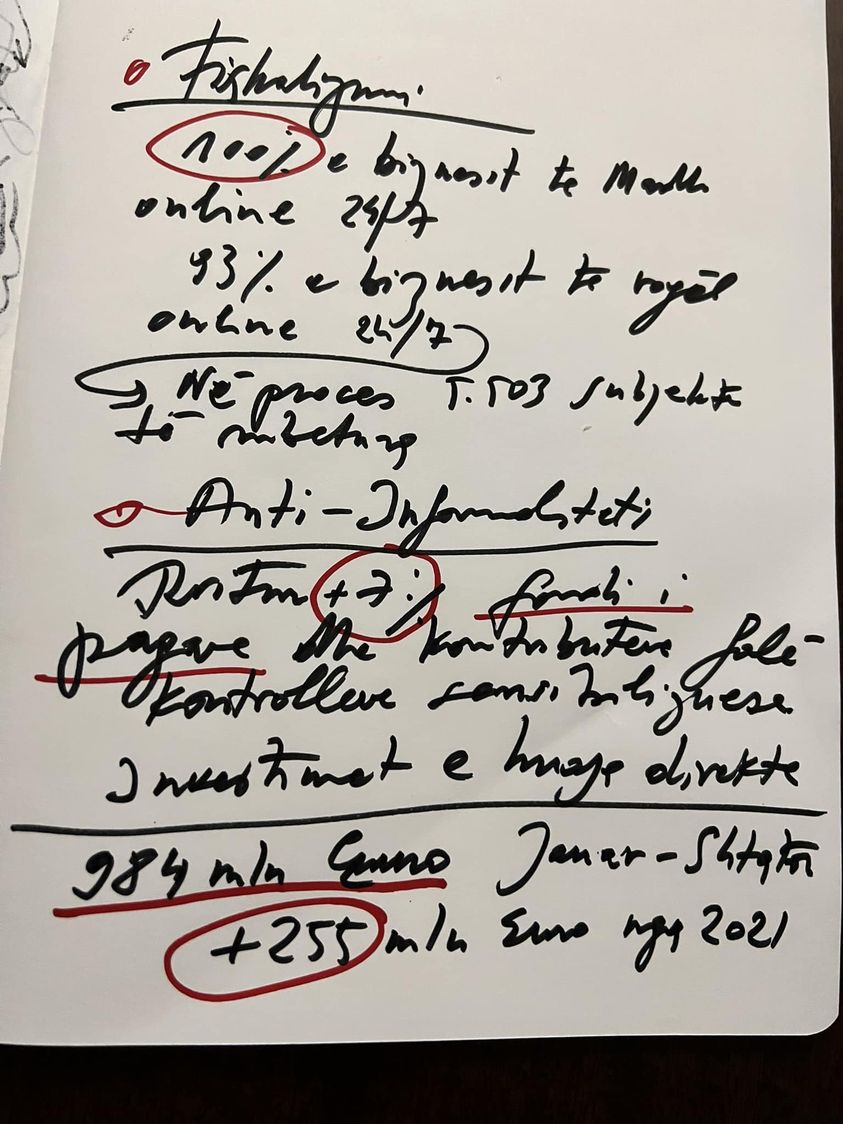 Fiskalizimi
100% e biznesit te Madh
online 24/7
93% e biznesit te vogël
online 24/7
Në proces 5.503 subjekte
të mbetura
Anti-Informaliteti
Rritur +7% fondi i
pagave dhe kontributeve falë
kontrolleve sensibilizuese
Investimet e huaje direkte
984 mln Euro Janar-Shtator
+255 mln Euro nga 2021